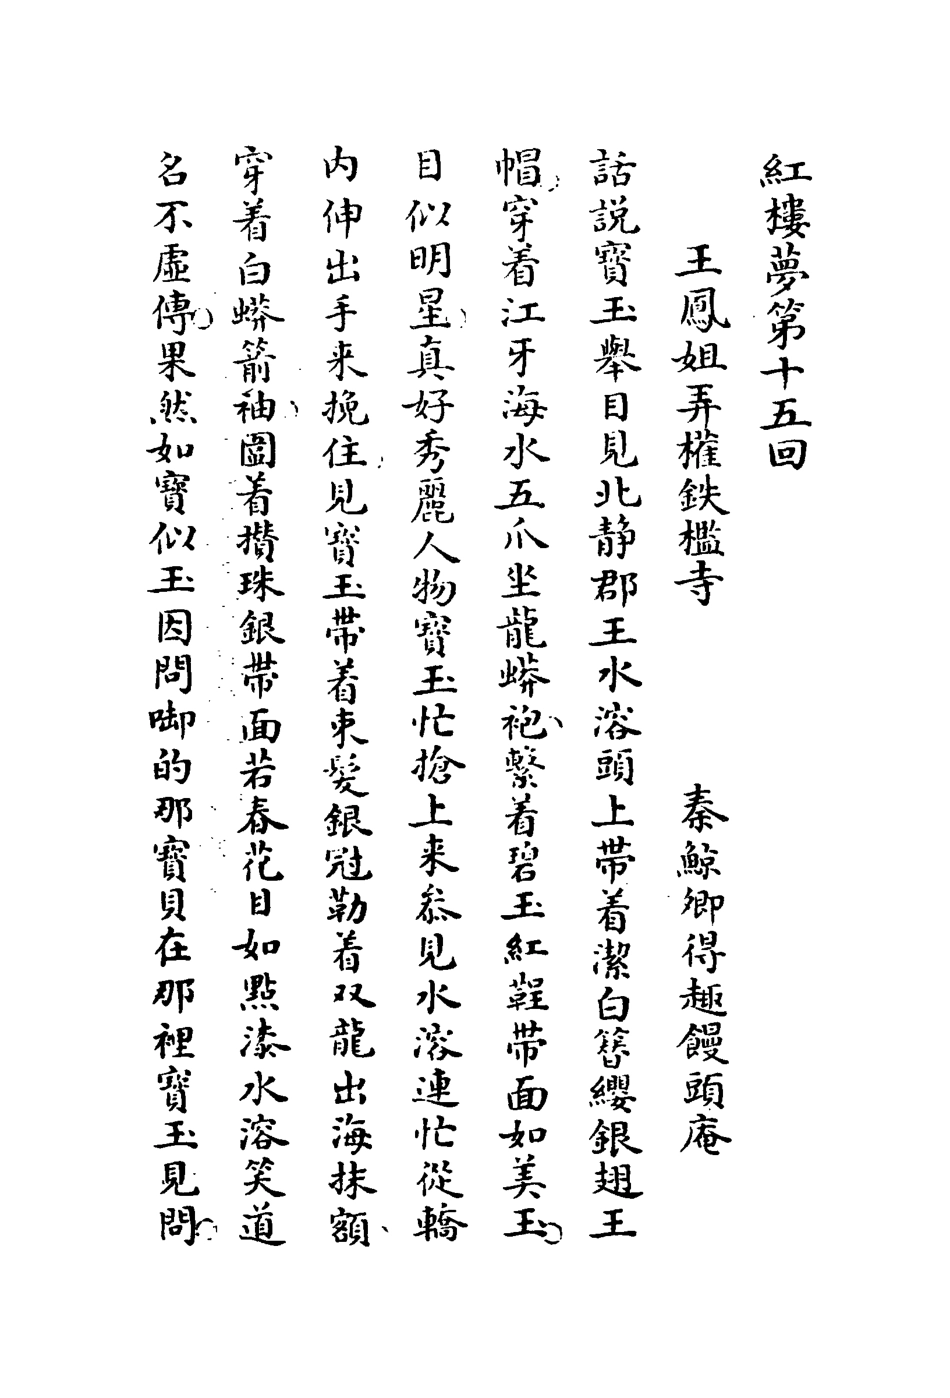 紅樓夢第十五回
王鳳姐弄權鉄檻寺　秦鯨卿得趣饅頭庵
話説寶玉舉目見北静郡王水溶頭上帶着潔白簪纓銀翅王
帽穿着江牙海水五爪坐龍蟒袍繫着碧玉紅鞓帶面如美玉
目似明星真好秀麗人物寶玉忙搶上来叅見水溶連忙從轎
内伸出手来挽住見寶玉帶着束髮銀冠勒着双龍出海抹額
穿着白蟒箭袖圍着攢珠銀帶面若春花目如點漆水溶笑道
名不虛傳果然如寶似玉因問啣的那寶貝在那裡寶玉見問